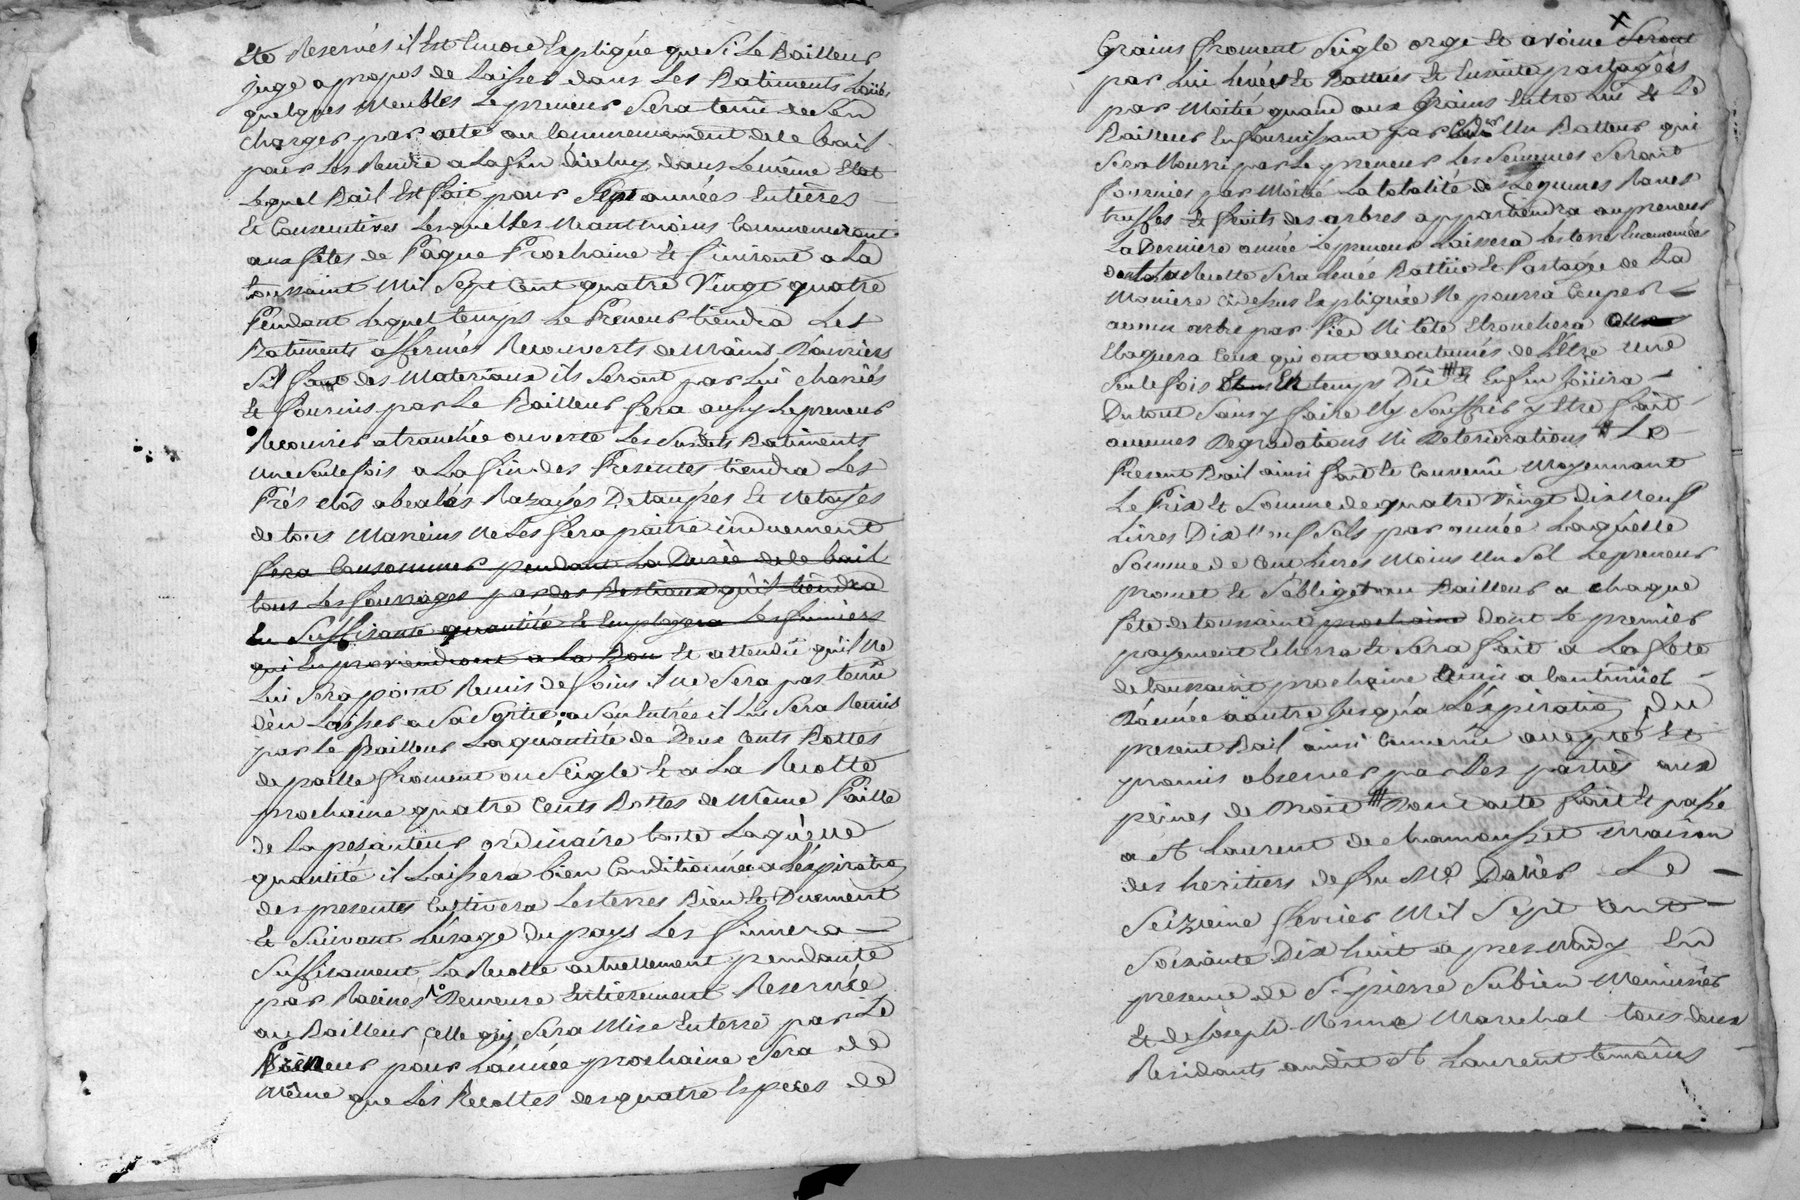 Eté Reservés il Est Encore Expliqué que Si Le Bailleur
juge apropos de Laisser dans Les Batiments Loüés
quelques Meubles Le preneur Sera tenû de S'en
charger par acte au Commencement de Ce bail
pour Les Rendre a La fin d'iceluy dans Le même Etat
Lequel Bail Est fait pour Sept années Entieres
Et Consecutives Lesquelles Neantmoins Commenceront
aux fêtes de Pâque Prochaine Et finiront a La
toussaint Mil Sept Cent quatre Vingt quatre
Pendant Lequel temps Le Preneur tiendra Les
Batiments affermés Recouverts de Mains D'ouvriers
S'il faut des Materiaux ils Seront par Lui chariés
Et fournis par Le Bailleur fera aussy Le preneur
Recouvrir a tranchée ouverte Les Susdits Batiments
une Seule fois a La fin des Presentes tiendra Les
Prés clôs Razayés Detaupés Et Netoyés
de tous ne Les fera paitre induement
fera Consommer pendant La Durée de Ce bail
tous Les fourrages par des Bestiaux qu'il tiendra
En Suffisante quantité Et Employera Les fumiers
qui En proviendront a La Et attendû qu'il Ne
Lui Sera point Remis de foins il ne Sera pas tenû
d'en Laisser a Sa Sortie a Son Entrée il Lui Sera Remis
par Le Bailleur La quantité de Deux Cents Bottes
de paille froment ou Seigle Et a La Recolte
prochaine quatre Cents Bottes de Même Paille
de La pesanteur ordinaire toute Laquelle
quantité il Laissera bien Conditionnée a L'expiration
des presentes Cultivera Les terres Bien Et Duement
Et Suivant L'usage Du pays Les fumera
Suffisament La Recolte actuellement pendante
par Racines Demeure Entierement Reservée
au Bailleur Celle qui Sera Mise En terre par Le
Preneur pour L'année prochaine Sera de
Même que Les Recoltes des quatre Especes de
Grains froment Seigle orge Et avoine Seront
par Lui Levées Et Battues Et Ensuite partagées
par Moitié quand aux Grains Entre Lui Et Le
Bailleur En fournissant par Un Batteur qui
Sera Nourri par Le preneur Les Semences Seront
fournies par Moitié La totalité des Legumes Raves
truffes Et fruits des arbres appartiendra au preneur
La Derniere année Le preneur Laissera Les terres Ensemencées
dont La Recolte Sera Levée Battüe Et Partagée de La
Maniere Cidessus Expliquée Ne pourra Couper
aucun arbre par Pied Ni tête Etronchera
Elaguera Ceux qui ont accoutumés de L'Etre une
Seule fois Et En temps Dû Et Enfin Joüira
Du tout Sans y faire Ny Souffrir y Etre fait
aucunes Degradations Ni Deteriorations # Le
Present Bail ainsi fait Et Convenû Moyennant
Le Prix Et Somme de quatre Vingt Dix Neuf
Livres Dix Neuf Sols par année Laquelle
Somme de Cent Livres Moins Un Sol Le preneur
promet Et S'obliget au Bailleur a chaque
fête de toussaint prochaine Dont Le premier
payement Echerra Et Sera fait a La fête
de toussaint prochaine ainsi a Continuer
D'année à autre Jusqu'a L'expiration Du
present Bail ainsi Convenû accepté Et
promis observer par Les parties aux
peines de Droit # Dont acte fait Et passé
a St Laurent de chamousset maison
des heritiers de feu Me Dalier Le
Seizieme fevrier Mil Sept Cent
Soixante Dix huit apres Midy En
presence de Sr pierre Subien Menuisier
Et de Joseph Marechal tous deux
Residants audit St Laurent temoins